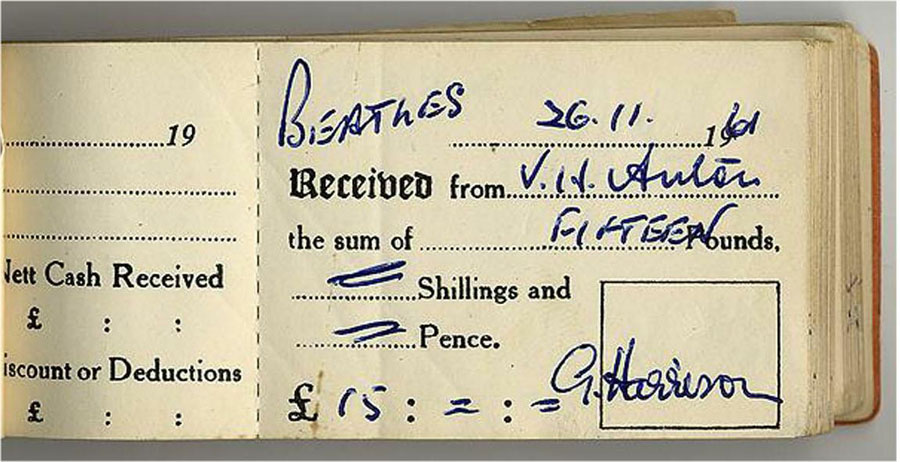 19
Nett Cash Received
£ : :
iscount or Deductions
£ : :
BEATLES 26.11. 1961
Received from V. H. Anton
the sum of FIFTEEN Pounds,
Shillings and
Pence.
£ 15 : = : =
G. Harrison